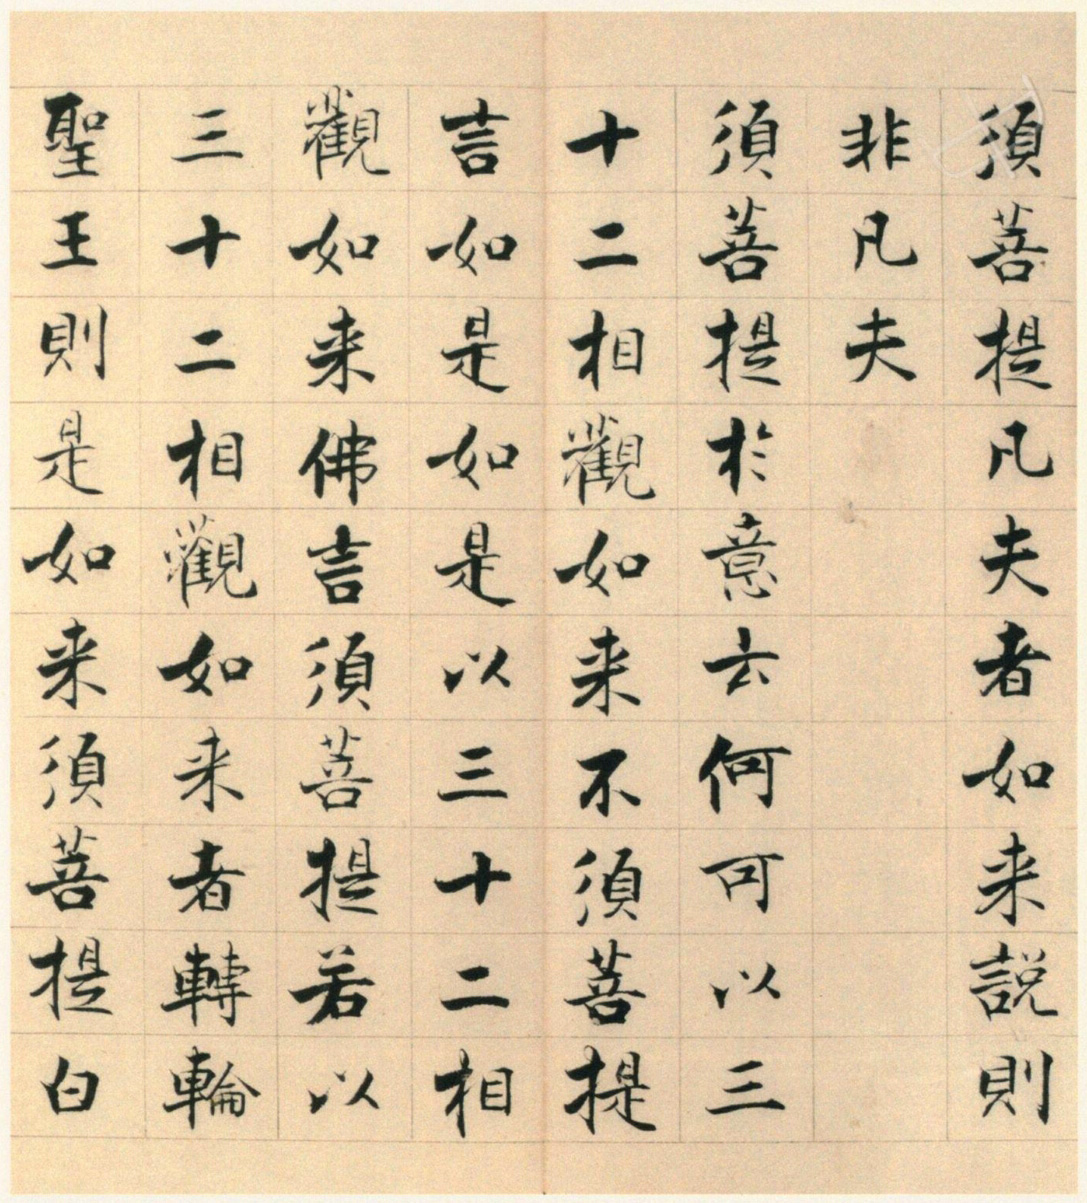 須菩提凡夫者如来説則
非凡夫
須菩提於意云何可以三
十二相觀如来不須菩提
言如是如是以三十二相
觀如来佛言須菩提若以
三十二相觀如来者轉輪
聖王則是如来須菩提白